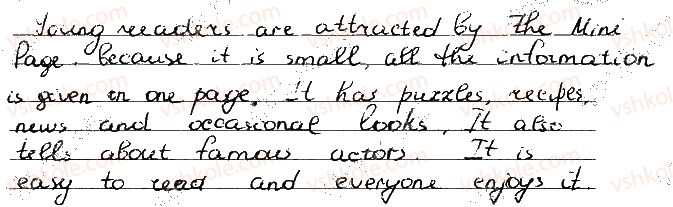 Young readers are attracted by The Mini
Page. because it is small, all the information
is given in one page. It has puzzles, recipes,
news and occasional looks. It also
tells about famous actors. It is
easy to read and everyone enjoys it.